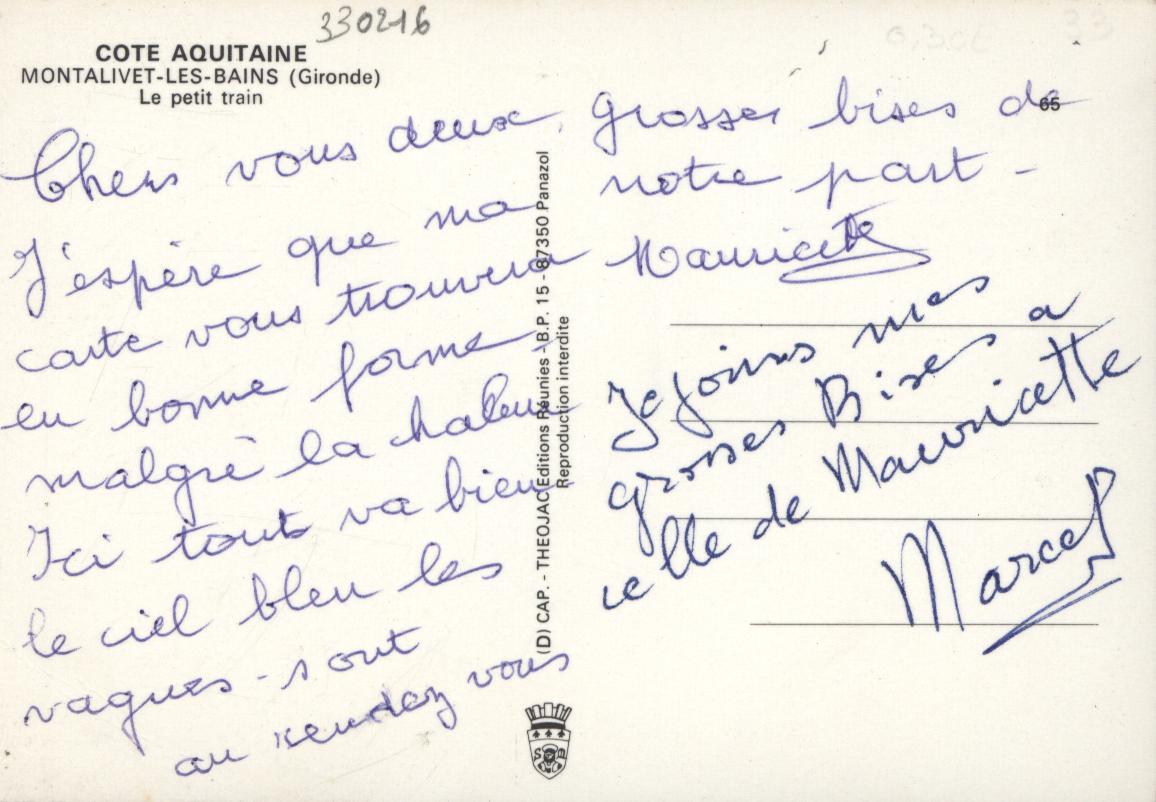 330216
COTE AQUITAINE
MONTALIVET-LES-BAINS (Gironde)
Le petit train
65
33
0,30€
Chers vous deux,
J'espère que ma
carte vous trouvera
en bonne forme
malgré la chaleur
Ici tout va bien
le ciel bleu les
vagues - sont
au rendez vous
grosses bises de
notre part -
Mauricette
Je joins mes
grosses Bises a
celle de Mauricette
Marcel
(D) CAP. - THEOJAC Editions Réunies - B.P. 15 - 87350 Panazol
Reproduction interdite